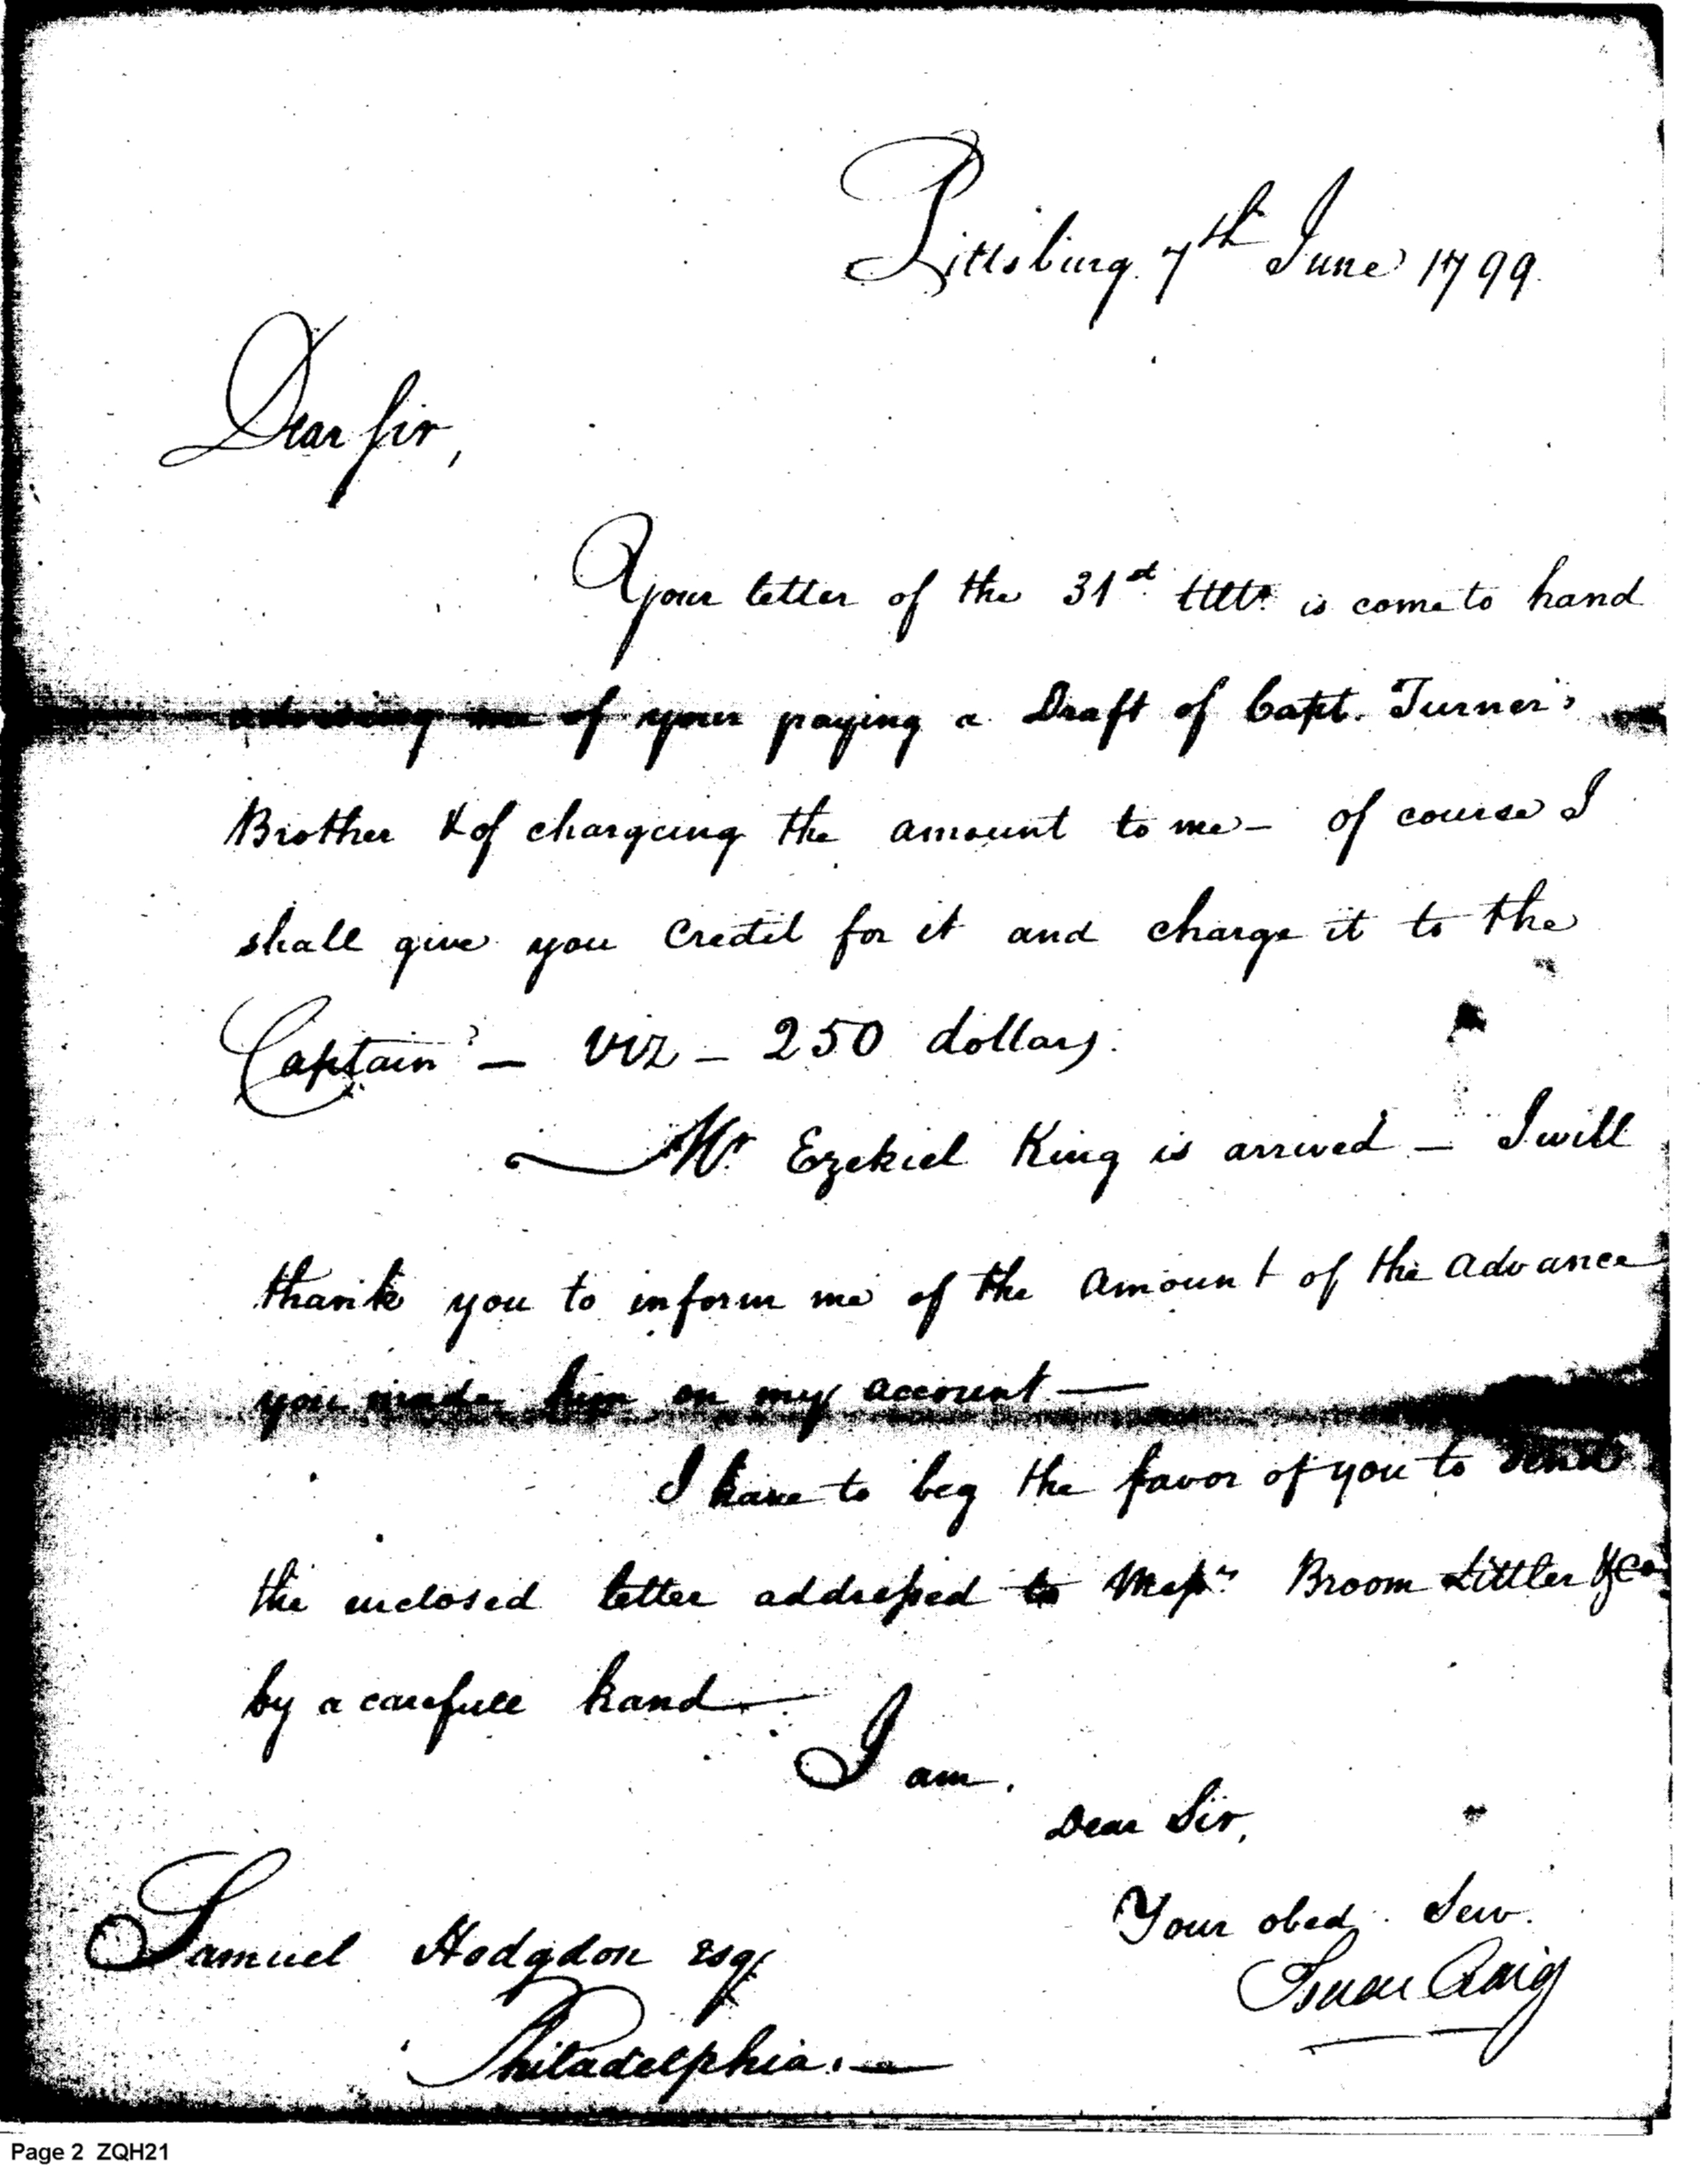 Pittsburg 7th June 1799.
Dear Sir,
Your letter of the 31st Ulto. is come to hand
advising me of your paying a Draft of Capt. Turner's
Brother & of chargeing the amount to me – of course I
shall give you Credit for it and charge it to the
Captain – viz – 250 dollars.
Mr Ezekiel King is arrived – I will
thank you to inform me of the amount of the advance
you made him on my account —
I have to beg the favor of you to send
the inclosed letter addressed to Messrs Broom Littler & Co
by a carefull hand —
I am.
Dear Sir,
Your obed. Serv.
Isaac Craig
Samuel Hodgdon Esqr
Philadelphia. —
Page 2 ZQH21